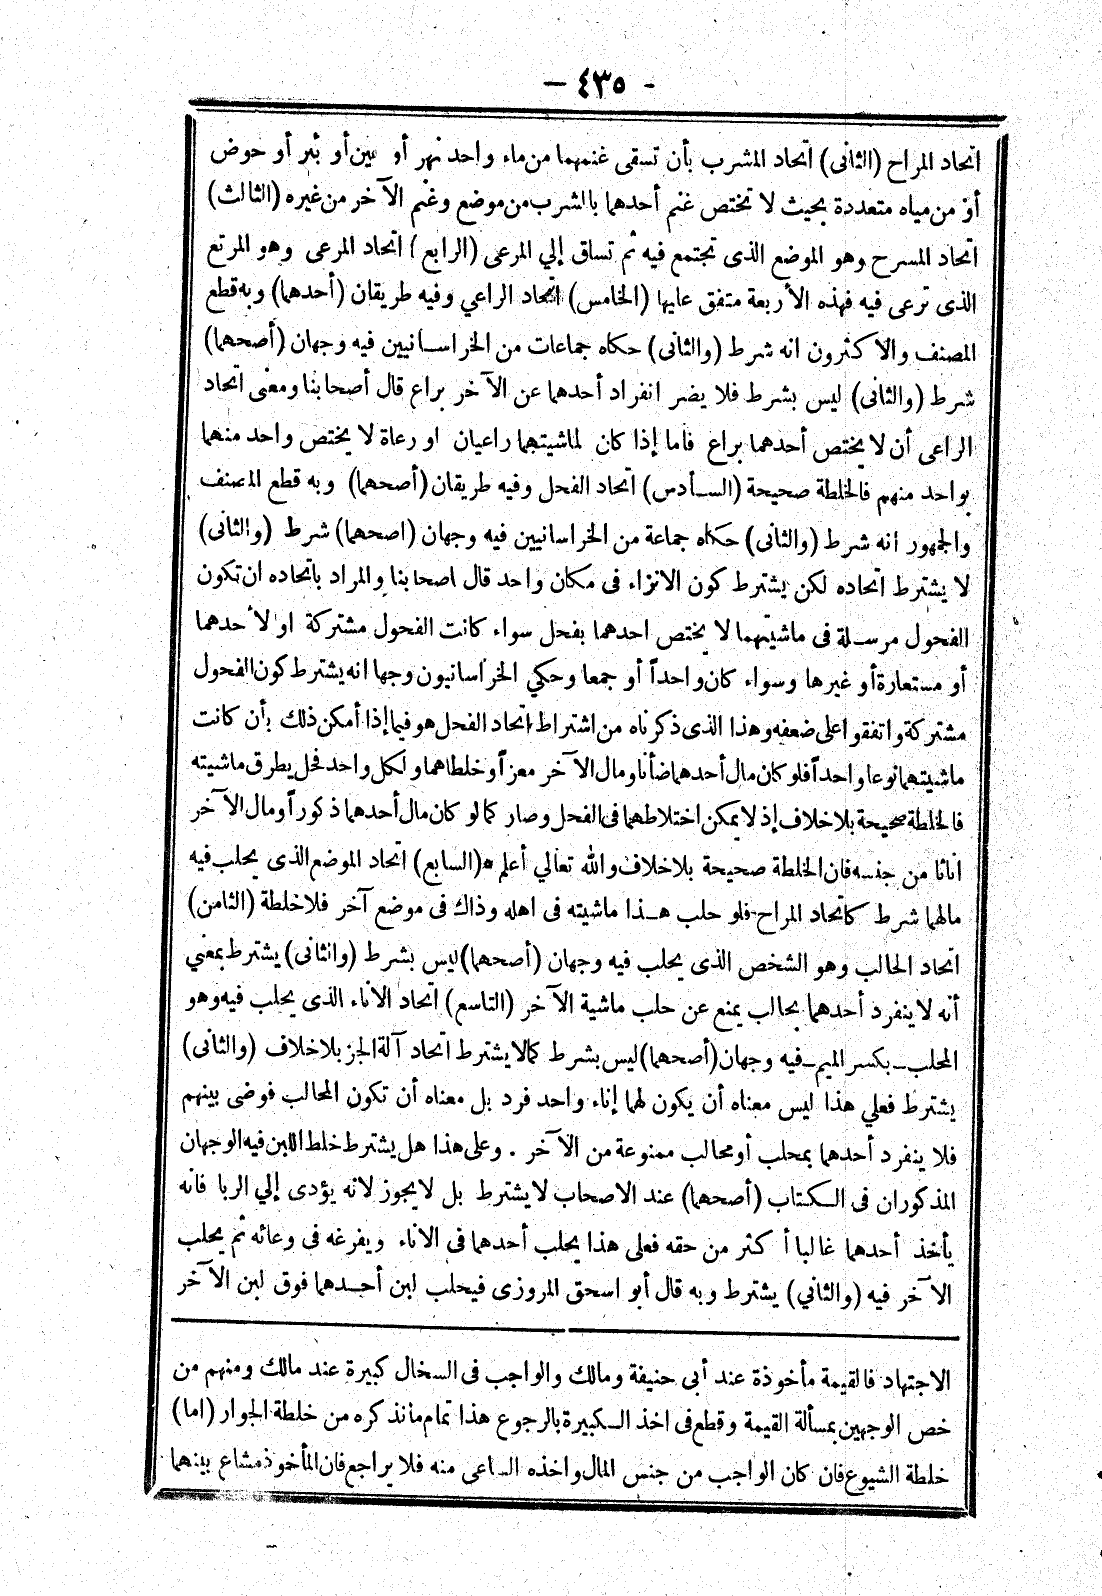 - ٤٣٥ -
اتحاد المراح (الثانى) اتحاد المشرب بأن تسقى غنمهما من ماء واحد نهر أو عين أو بئر أو حوض
أو من مياه متعددة بحيث لا تختص غنم أحدهما بالشرب من موضع وغنم الآخر من غيره (الثالث)
اتحاد المسرح وهو الموضع الذى تجتمع فيه ثم تساق إلي المرعى (الرابع) اتحاد المرعى وهو المرتع
الذى ترعى فيه فهذه الأربعة متفق عليها (الخامس) اتحاد الراعي وفيه طريقان (أحدهما) وبه قطع
المصنف والاكثرون انه شرط (والثانى) حكاه جماعات من الخراسانيين فيه وجهان (أصحهما)
شرط (والثانى) ليس بشرط فلا يضر انفراد أحدهما عن الآخر براع قال أصحابنا ومعنى اتحاد
الراعى أن لا يختص أحدهما براع فاما إذا كان لماشيتهما راعيان او رعاة لا يختص واحد منهما
بواحد منهم فالخلطة صحيحة (السادس) اتحاد الفحل وفيه طريقان (أصحهما) وبه قطع المصنف
والجمهور انه شرط (والثانى) حكاه جماعة من الخراسانيين فيه وجهان (اصحهما) شرط (والثانى)
لا يشترط اتحاده لكن يشترط كون الانزاء فى مكان واحد قال اصحابنا والمراد باتحاده ان تكون
الفحول مرسلة فى ماشيتهما لا يختص احدهما بفحل سواء كانت الفحول مشتركة او لأحدهما
أو مستعارة أو غيرها وسواء كان واحداً أو جمعا وحكي الخراسانيون وجها انه يشترط كون الفحول
مشتركة واتفقوا على ضعفه وهذا الذى ذكرناه من اشتراط اتحاد الفحل هو فيما إذا أمكن ذلك بأن كانت
ماشيتهما نوعا واحداً فلو كان مال أحدهما ضأنا ومال الآخر معزاً وخلطاهما ولكل واحد فحل يطرق ماشيته
فالخلطة صحيحة بلا خلاف إذ لا يمكن اختلاطهما فى الفحل وصار كما لو كان مال أحدهما ذكوراً ومال الآخر
اناثا من جنسه فان الخلطة صحيحة بلا خلاف والله تعالي أعلم * (السابع) اتحاد الموضع الذى يحلب فيه
مالهما شرط كاتحاد المراح فلو حلب هذا ماشيته فى اهله وذاك فى موضع آخر فلا خلطة (الثامن)
اتحاد الحالب وهو الشخص الذى يحلب فيه وجهان (أصحهما) ليس بشرط (والثانى) يشترط بمعني
أنه لا ينفرد أحدهما بحالب يمنع عن حلب ماشية الآخر (التاسع) اتحاد الاناء الذى يحلب فيه وهو
المحلب ـ بكسر الميم ـ فيه وجهان (أصحهما) ليس بشرط كما لا يشترط اتحاد آلة الجز بلا خلاف (والثانى)
يشترط فعلي هذا ليس معناه أن يكون لهما إناء واحد فرد بل معناه أن تكون المحالب فوضى بينهم
فلا ينفرد أحدهما بمحلب أو محالب ممنوعة من الآخر . وعلى هذا هل يشترط خلط اللبن فيه الوجهان
المذكوران فى الكتاب (أصحهما) عند الاصحاب لا يشترط بل لا يجوز لانه يؤدى إلي الربا فانه
يأخذ أحدهما غالبا أكثر من حقه فعلى هذا يحلب أحدهما فى الاناء ويفرغه فى وعائه ثم يحلب
الآخر فيه (والثاني) يشترط وبه قال أبو اسحق المروزى فيحلب لبن أحدهما فوق لبن الآخر
الاجتهاد فالقيمة مأخوذة عند أبى حنيفة ومالك والواجب فى السخال كبيرة عند مالك ومنهم من
خص الوجهين بمسألة القيمة وقطع فى اخذ الكبيرة بالرجوع هذا تمام مانذكره من خلطة الجوار (اما)
خلطة الشيوع فان كان الواجب من جنس المال واخذه الساعى منه فلا يراجع فان المأخوذ مشاع بينهما